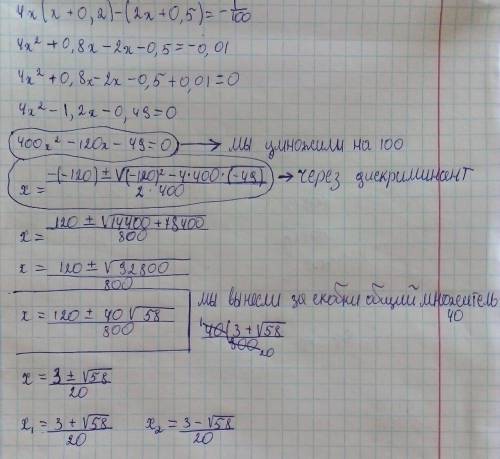 4x(x+0,2)-(2x+0,5)=-1/100
4x²+0,8x-2x-0,5=-0,01
4x²+0,8x-2x-0,5+0,01=0
4x²-1,2x-0,49=0
400x²-120x-49=0 → мы умножили на 100
x = (-(-120)±√((-120)²-4·400·(-49)))/(2·400) → через дискриминант
x = (120±√(14400+78400))/800
x = (120±√92800)/800
x = (120±40√58)/800
мы вынесли за скобки общий множитель 40
1 40(3+√58
800 20
x = (3±√58)/20
x₁ = (3+√58)/20 x₂ = (3-√58)/20